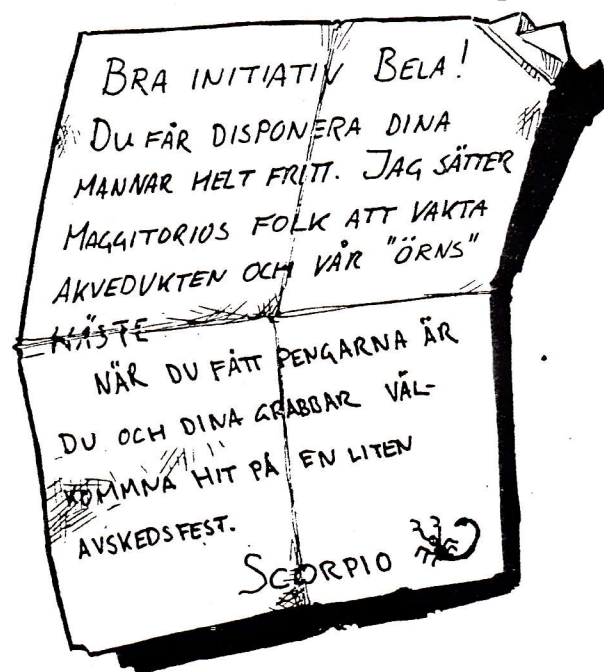 BRA INITIATIV BELA!
DU FÅR DISPONERA DINA
MANNAR HELT FRITT. JAG SÄTTER
MAGGITORIUS FOLK ATT VAKTA
AKVEDUKTEN OCH VÅR "ÖRNS"
NÄSTE
NÄR DU FÅTT PENGARNA ÄR
DU OCH DINA GRABBAR VÄL-
KOMMNA HIT PÅ EN LITEN
AVSKEDSFEST.
SCORPIO